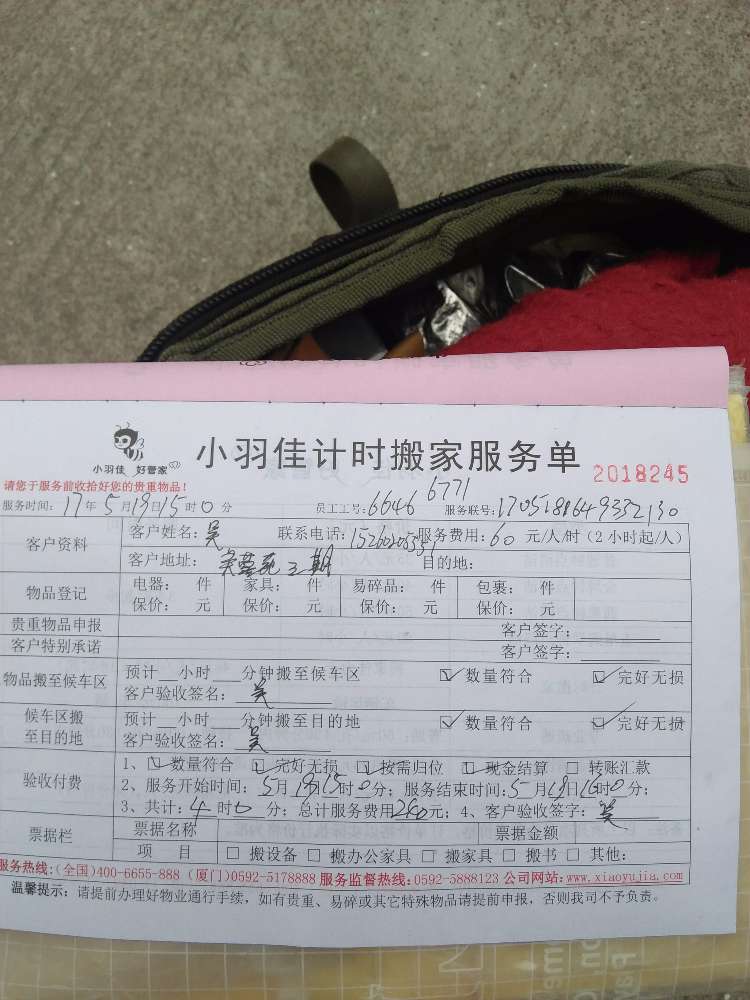 小羽佳 好管家
小羽佳计时搬家服务单 2018245
请您于服务前收拾好您的贵重物品！
服务时间：17年5月19日15时0分 员工工号：6646 6771 服务联号：
客户资料 客户姓名：吴 联系电话： 服务费用：60元/人/时（2小时起/人）
客户地址：芙蓉苑三期 目的地：
物品登记 电器： 件 家具： 件 易碎品： 件 包裹： 件
保价： 元 保价： 元 保价： 元 保价： 元
贵重物品申报 客户签字：
客户特别承诺 客户签字：
物品搬至候车区 预计__小时___分钟搬至候车区 ☑数量符合 ☑完好无损
客户验收签名：吴
候车区搬至目的地 预计__小时___分钟搬至目的地 ☑数量符合 ☑完好无损
客户验收签名：吴
验收付费 1、☑数量符合 ☑完好无损 ☑按需归位 ☑现金结算 □转账汇款
2、服务开始时间：5月19日15时0分；服务结束时间：5月19日16时0分；
3、共计：4时0分；总计服务费用 元；4、客户验收签字：吴
票据栏 票据名称 票据金额
项 目 □搬设备 □搬办公家具 □搬家具 □搬书 □其他：
服务热线：（全国）400-6655-888（厦门）0592-5178888 服务监督热线：0592-5888123 公司网站：www.xiaoyujia.com
温馨提示：请提前办理好物业通行手续，如有贵重、易碎或其它特殊物品请提前申报，否则我司不予负责。